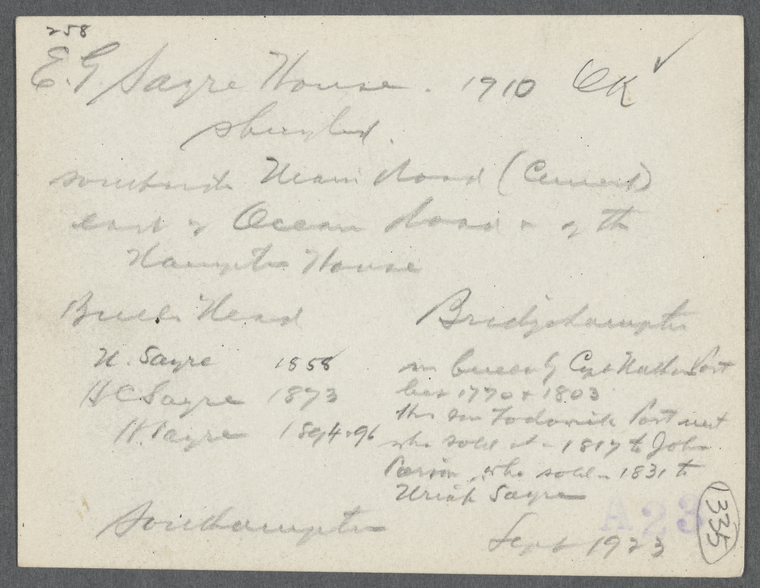 258
E. G. Sayre House. 1910 OK ✓
shingled.
southside Main Road (Cement)
east of Ocean Road & of the
Hampton House
Bulls Head
Bridgehampton
U. Sayre 1858
H C Sayre 1873
H Sayre 1894-96
by Capt Nathan Post
bet 1770 & 1803
his son Post next
who sold it - 1817 to John
Pierson, who sold - 1831 to
Uriah Sayre
Southampton
Sept 1923
A23
1335